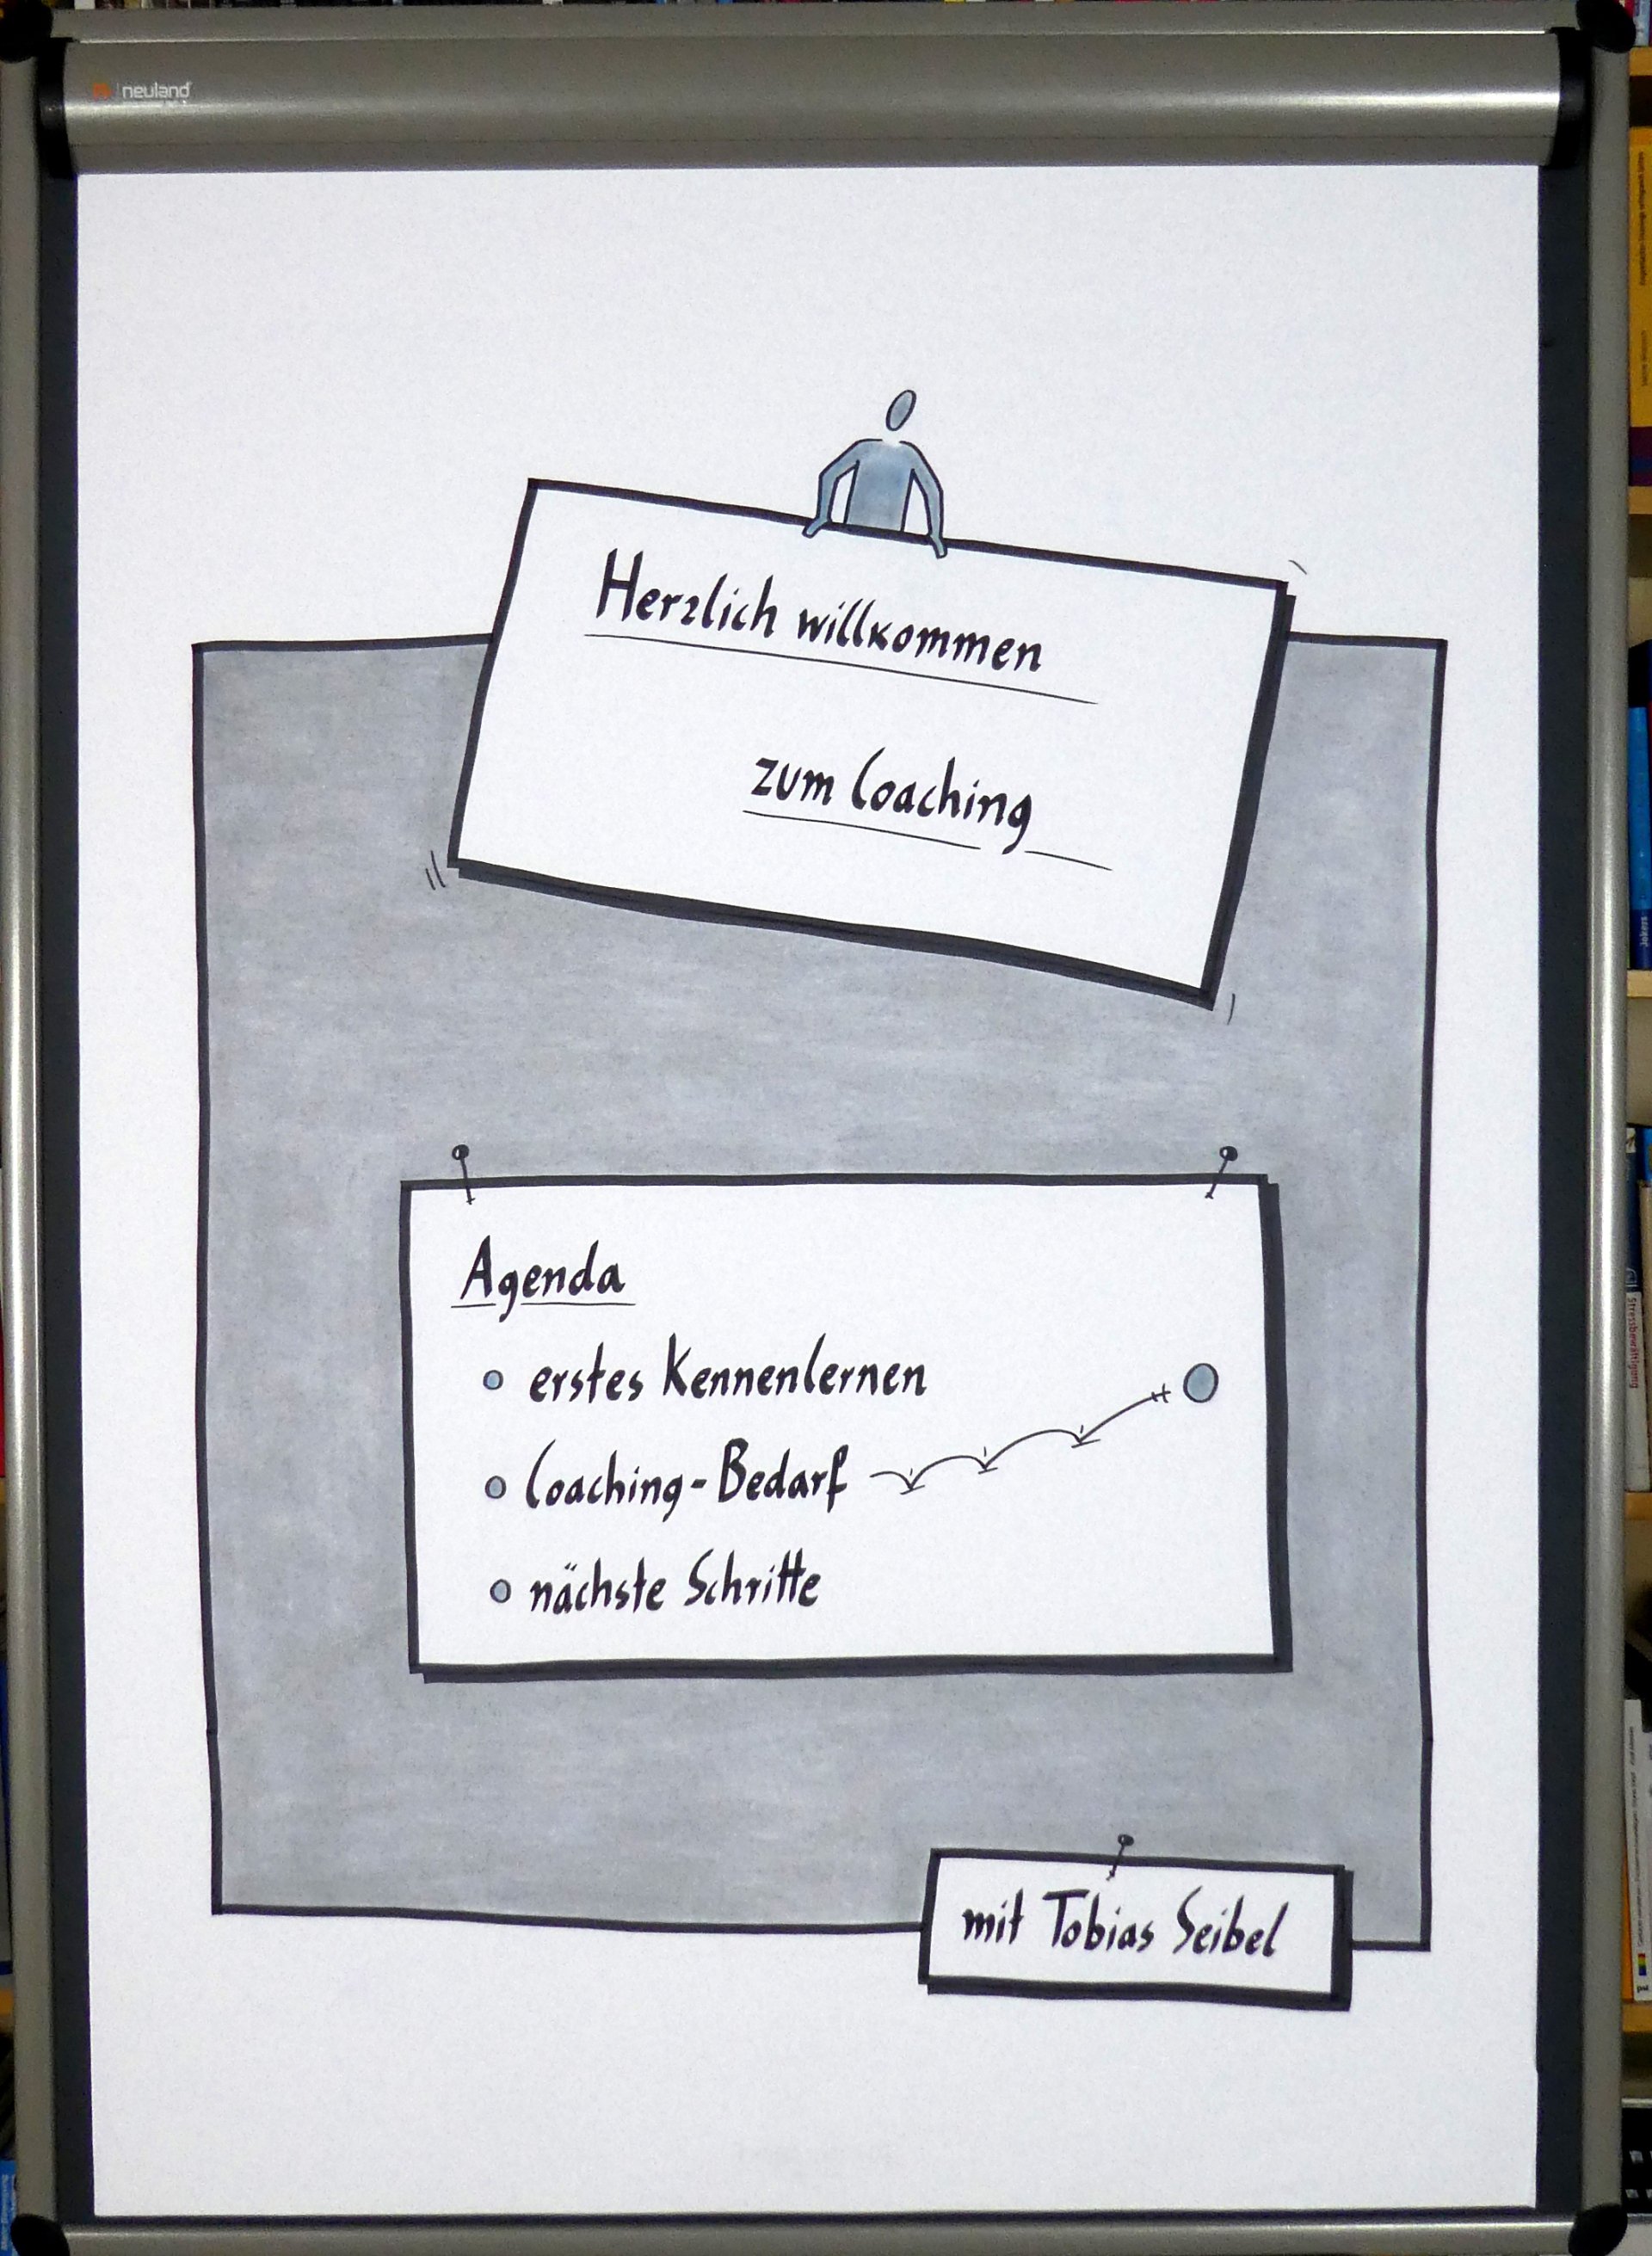 neuland
Herzlich willkommen
zum Coaching
Agenda
erstes Kennenlernen
Coaching-Bedarf
nächste Schritte
mit Tobias Seibel
Jokers
Stressbewältigung